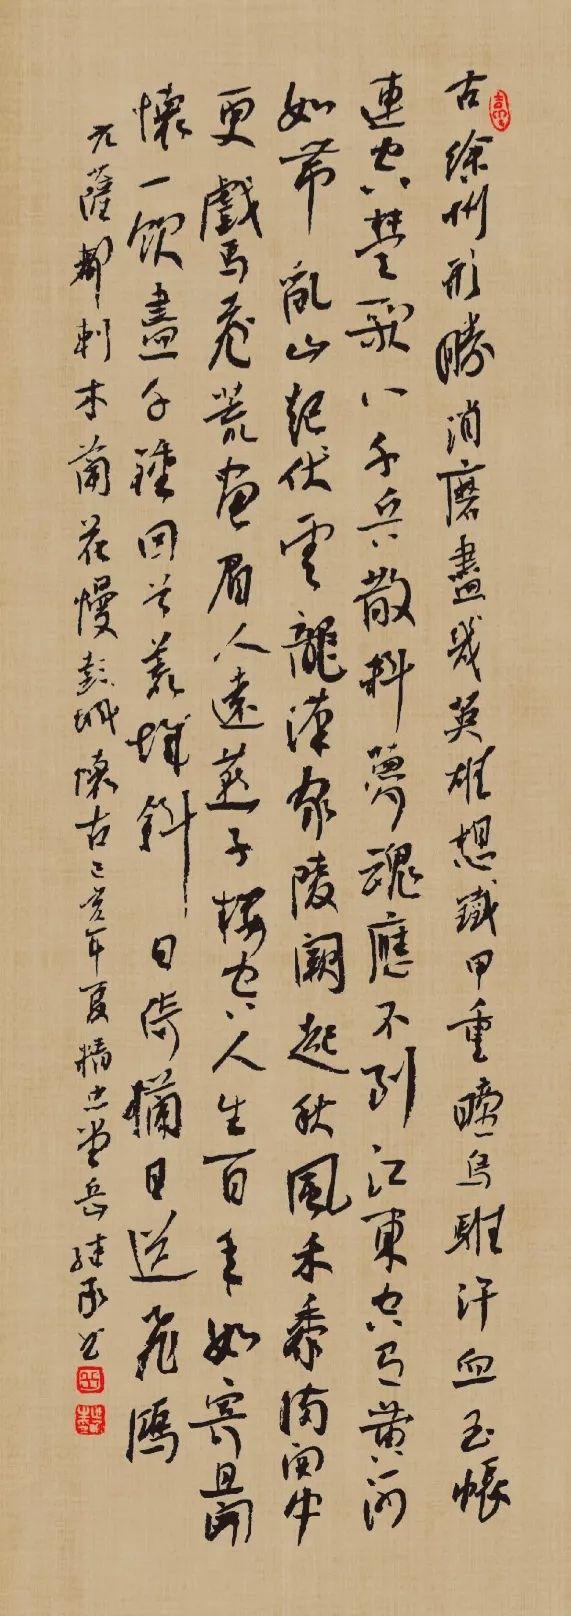 古徐州形勝消磨盡幾英雄想鐵甲重瞳烏騅汗血玉帳
連空楚歌八千兵散料夢魂應不到江東空有黄河
如帶亂山起伏雲龍漢家陵闕起秋風禾黍滿関中
更戲馬臺荒畫眉人遠燕子樓空人生百年如寄且開
懷一飲盡千鍾回首荒城斜日倚欄目送飛鴻
元薩都剌木蘭花慢彭城懷古己亥年夏精忠堂岳继承书